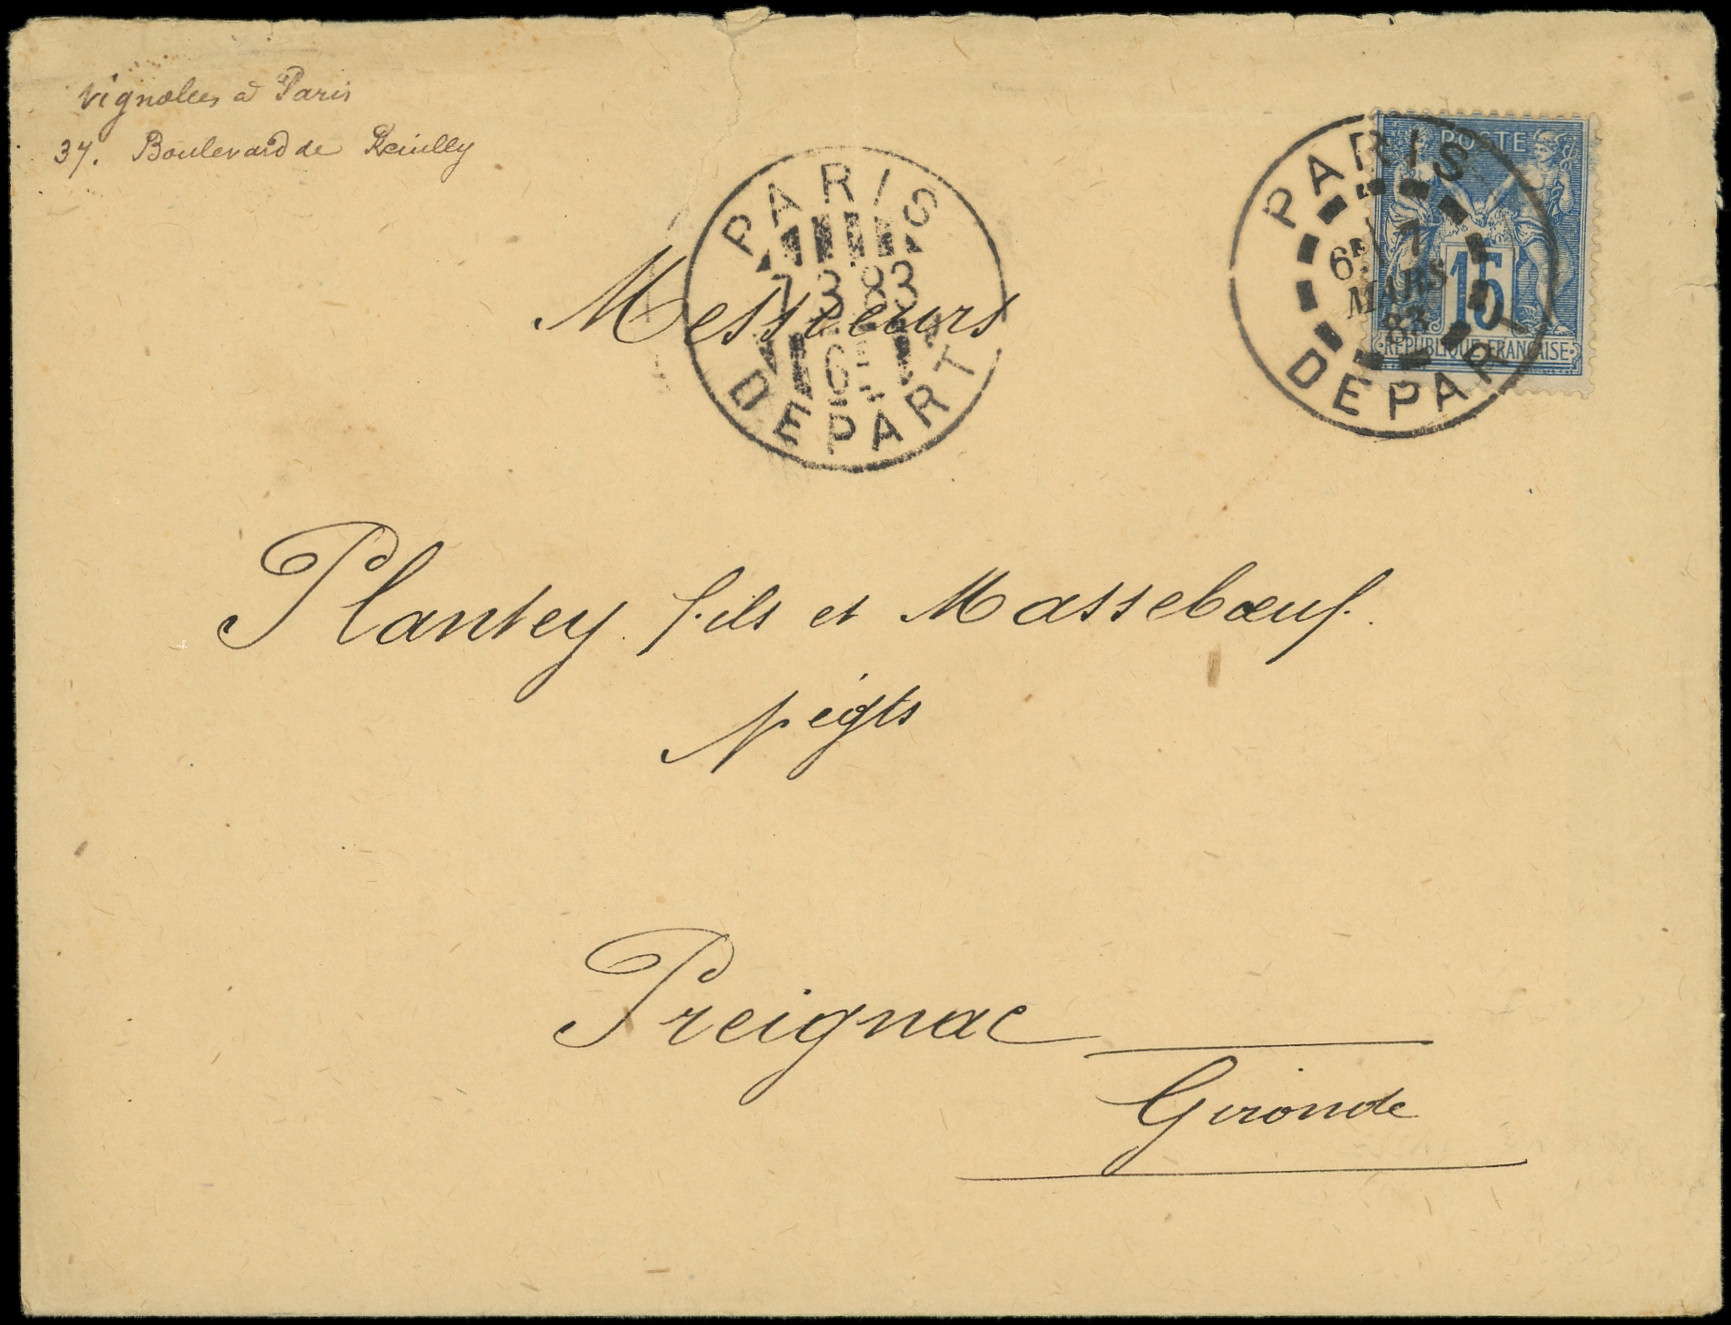 Vignolles à Paris
37. Boulevard de Reuilly
PARIS
7 3 83
6E
DEPART
PARIS
6E 7
MARS
83
DEPART
POSTE
15
REPUBLIQUE FRANÇAISE
Messieurs
Plantey fils et Masseboeuf.
Négts
Preignac
Gironde